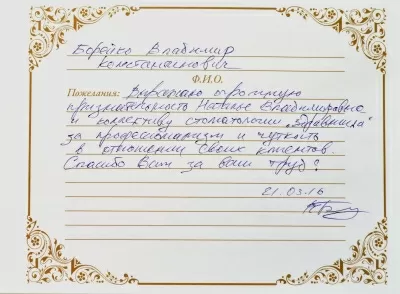 Борейко Владимир
Константинович
Ф.И.О.
Пожелания: Выражаю огромную
признательность Наталье Владимировне
и коллективу стоматологии „Здравница“
за профессионализм и чуткость
в отношении своих клиентов.
Спасибо Вам за ваш труд!
21.03.16